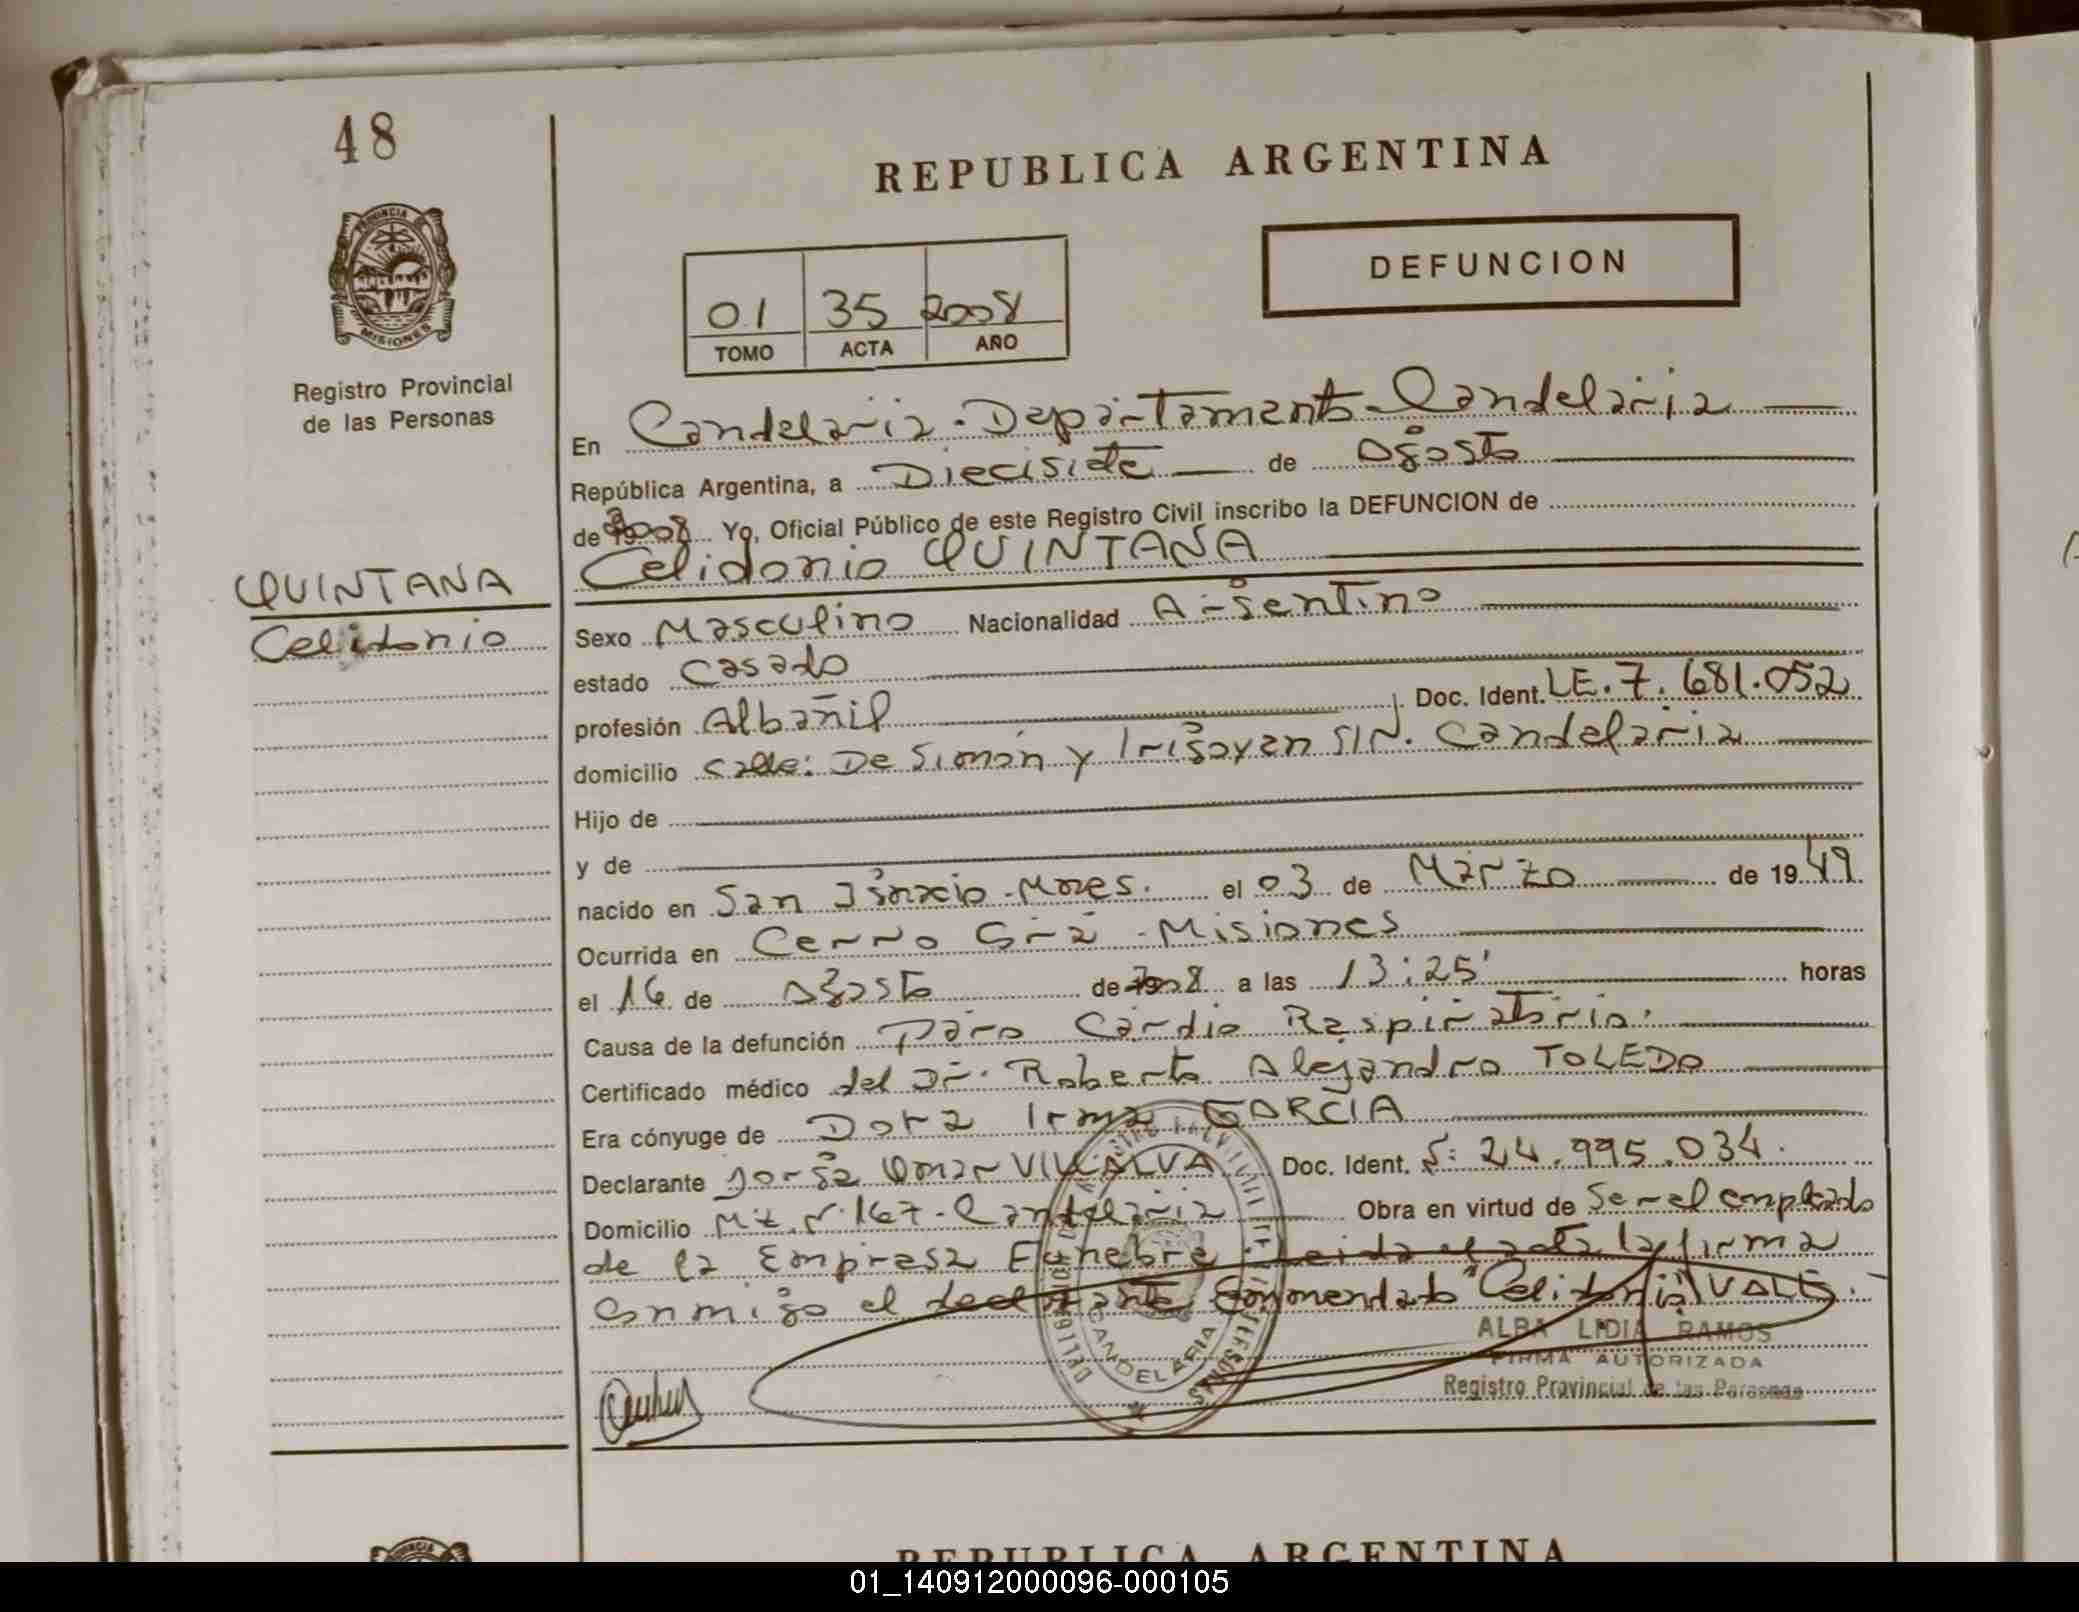 48
REPUBLICA ARGENTINA
PROVINCIA
MISIONES
Registro Provincial
de las Personas
DEFUNCION
01 35 2008
TOMO ACTA AÑO
En Candelaria - Departamento Candelaria
República Argentina, a Diecisiete de Agosto
de 2008 Yo, Oficial Público de este Registro Civil inscribo la DEFUNCION de
Celidonio QUINTANA
QUINTANA
Celidonio
Sexo Masculino Nacionalidad Argentino
estado Casado
profesión Albañil Doc. Ident. LE. 7.681.052
domicilio calle: De Simón y Irigoyen S/N. Candelaria
Hijo de
y de
nacido en San Ignacio - Mnes. el 03 de Marzo de 1949
Ocurrida en Cerro Corá - Misiones
el 16 de Agosto de 2008 a las 13:25' horas
Causa de la defunción Paro Cardio Respiratorio.
Certificado médico del Dr. Roberto Alejandro TOLEDO
Era cónyuge de Dora Irma GARCIA
Declarante Jorge Omar VILLALVA Doc. Ident. 24.995.034.
Domicilio Mz. N° 167 - Candelaria Obra en virtud de Ser el empleado
de la Empresa Fúnebre Leida el acta la firma
conmigo el declarante Enmendado "Celidonio" VALE.
CANDELARIA
ALBA LIDIA RAMOS
FIRMA AUTORIZADA
Registro Provincial de las Personas
REPUBLICA ARGENTINA
PROVINCIA
01_140912000096-000105